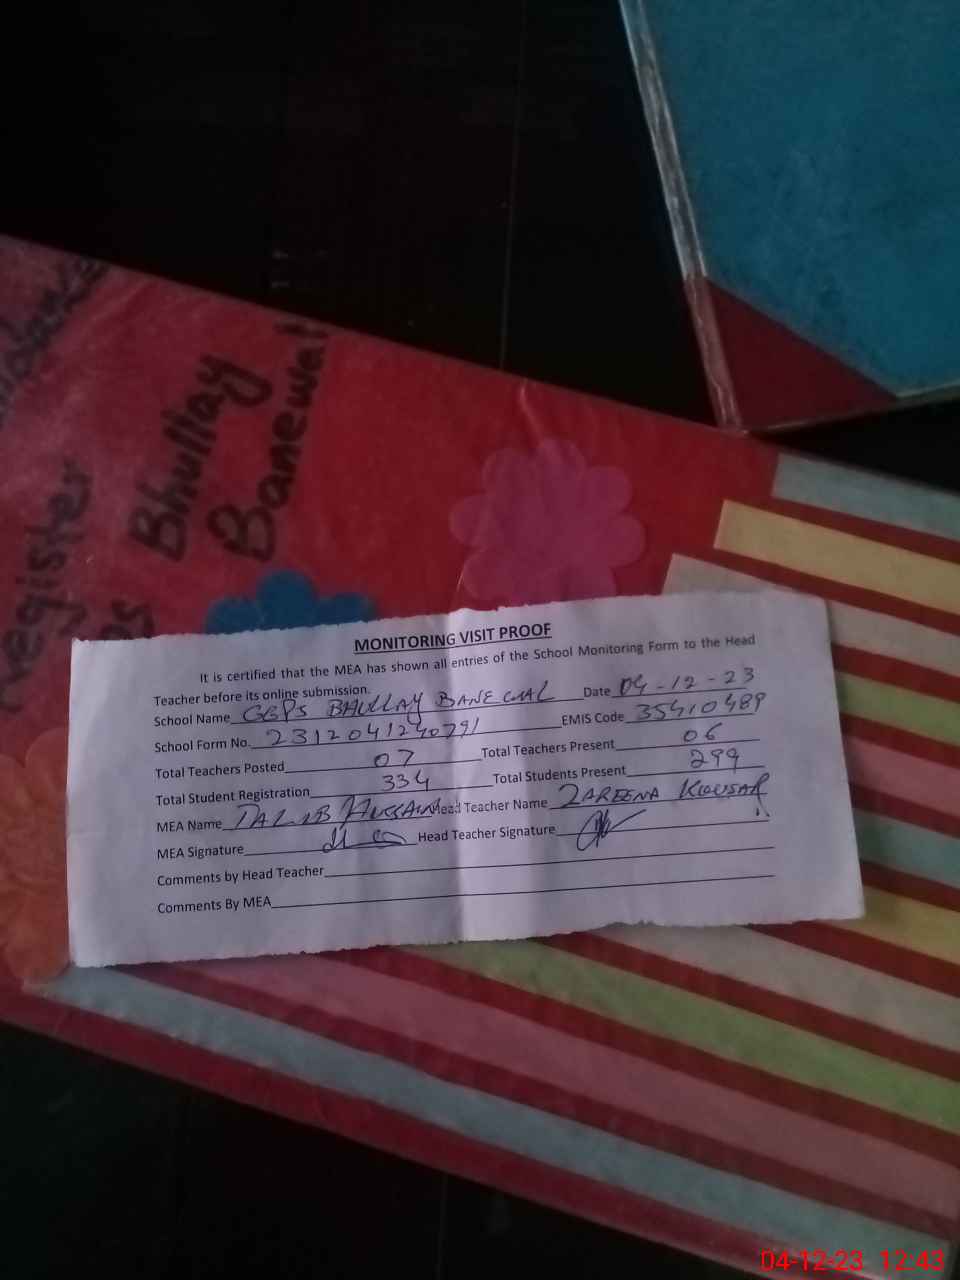 Register
Bhullay
Banewal
MONITORING VISIT PROOF
It is certified that the MEA has shown all entries of the School Monitoring Form to the Head
Teacher before its online submission.
School Name GGPS BHULLAY BANEWAL Date 04-12-23
School Form No. 2312041240791 EMIS Code 35410489
Total Teachers Posted 07 Total Teachers Present 06
Total Student Registration 334 Total Students Present 299
MEA Name TALIB HUSSAIN Head Teacher Name ZAREENA KOUSAR
MEA Signature Head Teacher Signature
Comments by Head Teacher
Comments By MEA
04-12-23 12:43